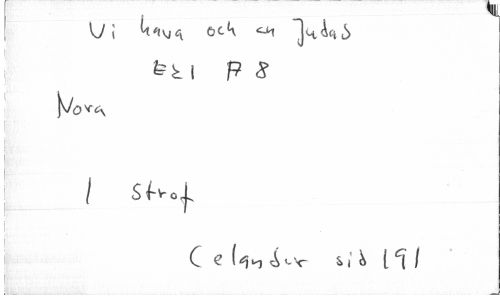 Vi hava och en Judas
E21 A 8
Nora
1 Strof
Celander sid 191